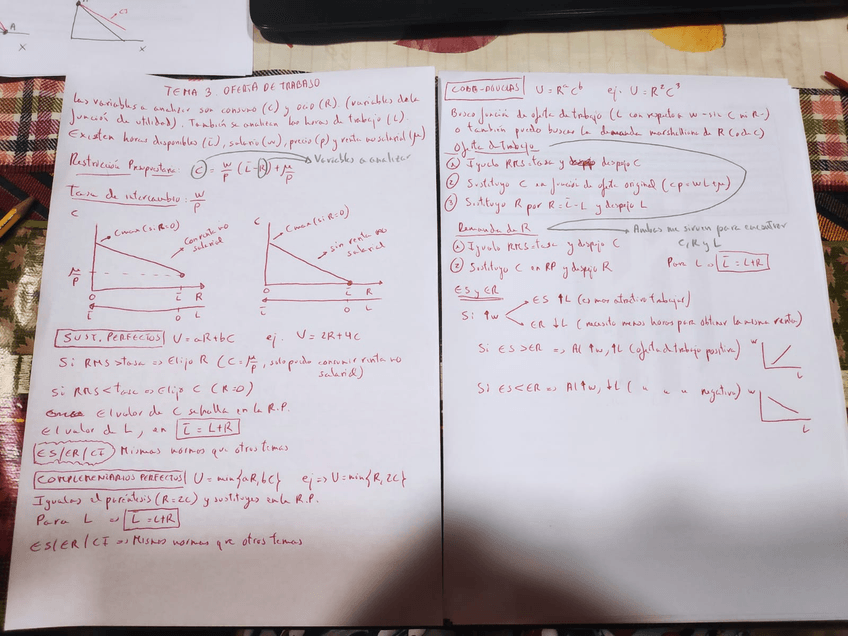 A
X
CI
X
TEMA 3. OFERTA DE TRABAJO
Las variables a analizar son consumo (C) y ocio (R). (variables de la
función de utilidad). También se analizan las horas de trabajo (L).
Existen horas disponibles (L̄), salario (w), precio (p) y renta no salarial (μ)
Restricción Presupuestaria: C = w/p (L̄-R) + μ/p
Variables a analizar
Tasa de intercambio: w/p
C
Cmax (si R=0)
Consumo no
salarial
μ/p
O L̄ R
L̄ O L
C
Cmax (si R=0)
sin renta no
salarial
O L̄ R
L̄ O L
SUST. PERFECTOS U = aR+bC ej. U = 2R+4C
Si RMS>tasa => Elijo R (C = μ/p, solo puedo consumir renta no
salarial)
Si RMS<tasa => Elijo C (R=0)
El valor de C se halla en la R.P.
El valor de L, en L̄ = L+R
ES/ER/CI Mismas normas que otros temas
COMPLEMENTARIOS PERFECTOS U = min{aR, bC} ej => U = min{R, 2C}
Igualas el paréntesis (R=2C) y sustituyes en la R.P.
Para L => L̄ = L+R
ES/ER/CI => Mismas normas que otros temas
COBB-DOUGLAS U = RᵃCᵇ ej. U = R²C³
Busco función de oferta de trabajo (L con respecto a w - sin C ni R -)
o también puedo buscar la demanda marshalliana de R (o de C)
Oferta de trabajo
1 Igualo RMS=tasa y despejo C
2 Sustituyo C en función de oferta original (cp = wL+μ)
3 Sustituyo R por R = L̄-L y despejo L
Demanda de R
Ambas me sirven para encontrar
C, R y L
1 Igualo RMS=tasa y despejo C
Para L => L̄ = L+R
2 Sustituyo C en RP y despejo R
ES y ER
Si ↑w
ES ↑L (es más atractivo trabajar)
ER ↓L (necesito menos horas para obtener la misma renta)
Si ES>ER => Al ↑w, ↑L (oferta de trabajo positiva)
w
L
Si ES<ER => Al ↑w, ↓L ( " " " negativa)
w
L